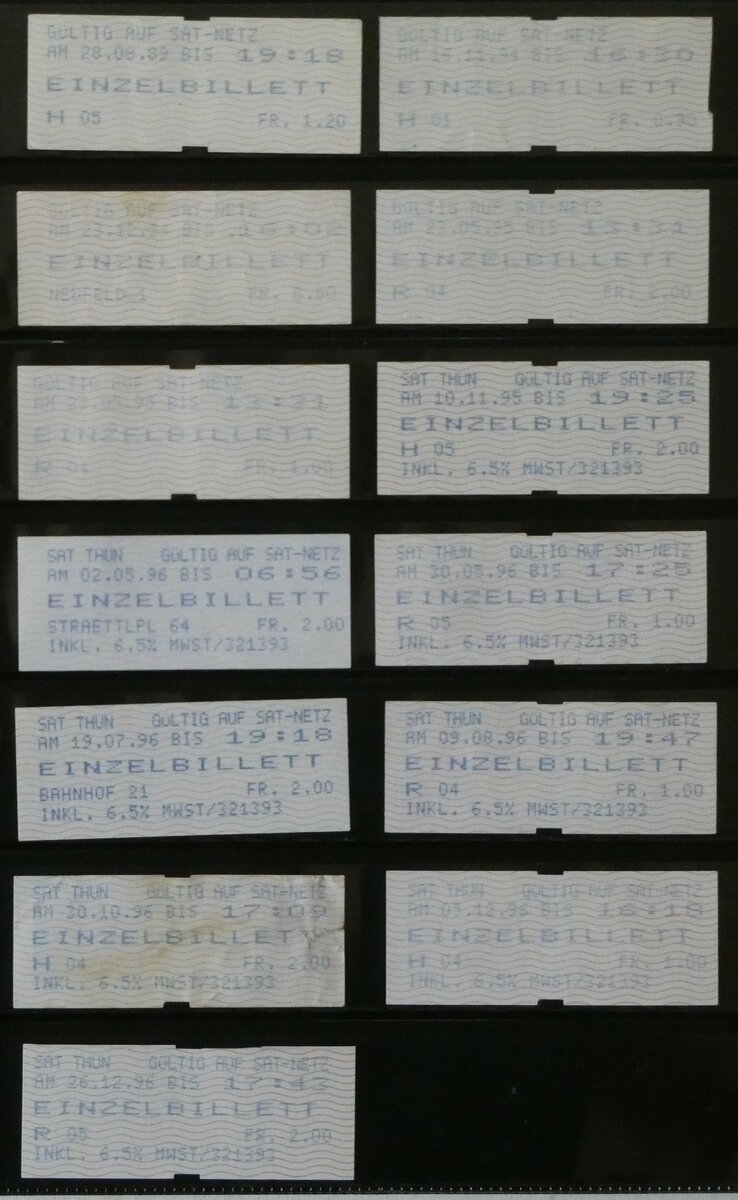 GÜLTIG AUF SAT-NETZ
AM 28.08.89 BIS 19:18
EINZELBILLETT
H 05 FR. 1.20
GÜLTIG AUF SAT-NETZ
AM 16.11.94 BIS 16:30
EINZELBILLETT
H FR.
GÜLTIG AUF SAT-NETZ
AM 23.12.94 BIS 16:02
EINZELBILLETT
NEUFELD 1 FR.
GÜLTIG AUF SAT-NETZ
AM BIS
EINZELBILLETT
R 04 FR. 2.00
GÜLTIG AUF SAT-NETZ
AM BIS
EINZELBILLETT
R 04 FR. 1.00
SAT THUN GÜLTIG AUF SAT-NETZ
AM 10.11.95 BIS 19:25
EINZELBILLETT
H 05 FR. 2.00
INKL. 6.5% MWST/321393
SAT THUN GÜLTIG AUF SAT-NETZ
AM 02.05.96 BIS 06:56
EINZELBILLETT
STRAETTLPL 64 FR. 2.00
INKL. 6.5% MWST/321393
SAT THUN GÜLTIG AUF SAT-NETZ
AM 30.05.96 BIS 17:25
EINZELBILLETT
R 05 FR. 1.00
INKL. 6.5% MWST/321393
SAT THUN GÜLTIG AUF SAT-NETZ
AM 19.07.96 BIS 19:18
EINZELBILLETT
BAHNHOF 21 FR. 2.00
INKL. 6.5% MWST/321393
SAT THUN GÜLTIG AUF SAT-NETZ
AM 09.08.96 BIS 19:47
EINZELBILLETT
R 04 FR. 1.00
INKL. 6.5% MWST/321393
SAT THUN GÜLTIG AUF SAT-NETZ
AM 30.10.96 BIS 17:09
EINZELBILLETT
H 04 FR. 2.00
INKL. 6.5% MWST/321393
SAT THUN GÜLTIG AUF SAT-NETZ
AM 05.12.96 BIS 16:18
EINZELBILLETT
H 04 FR. 1.00
INKL. 6.5% MWST/321393
SAT THUN GÜLTIG AUF SAT-NETZ
AM 26.12.96 BIS 17:43
EINZELBILLETT
R 05 FR. 2.00
INKL. 6.5% MWST/321393